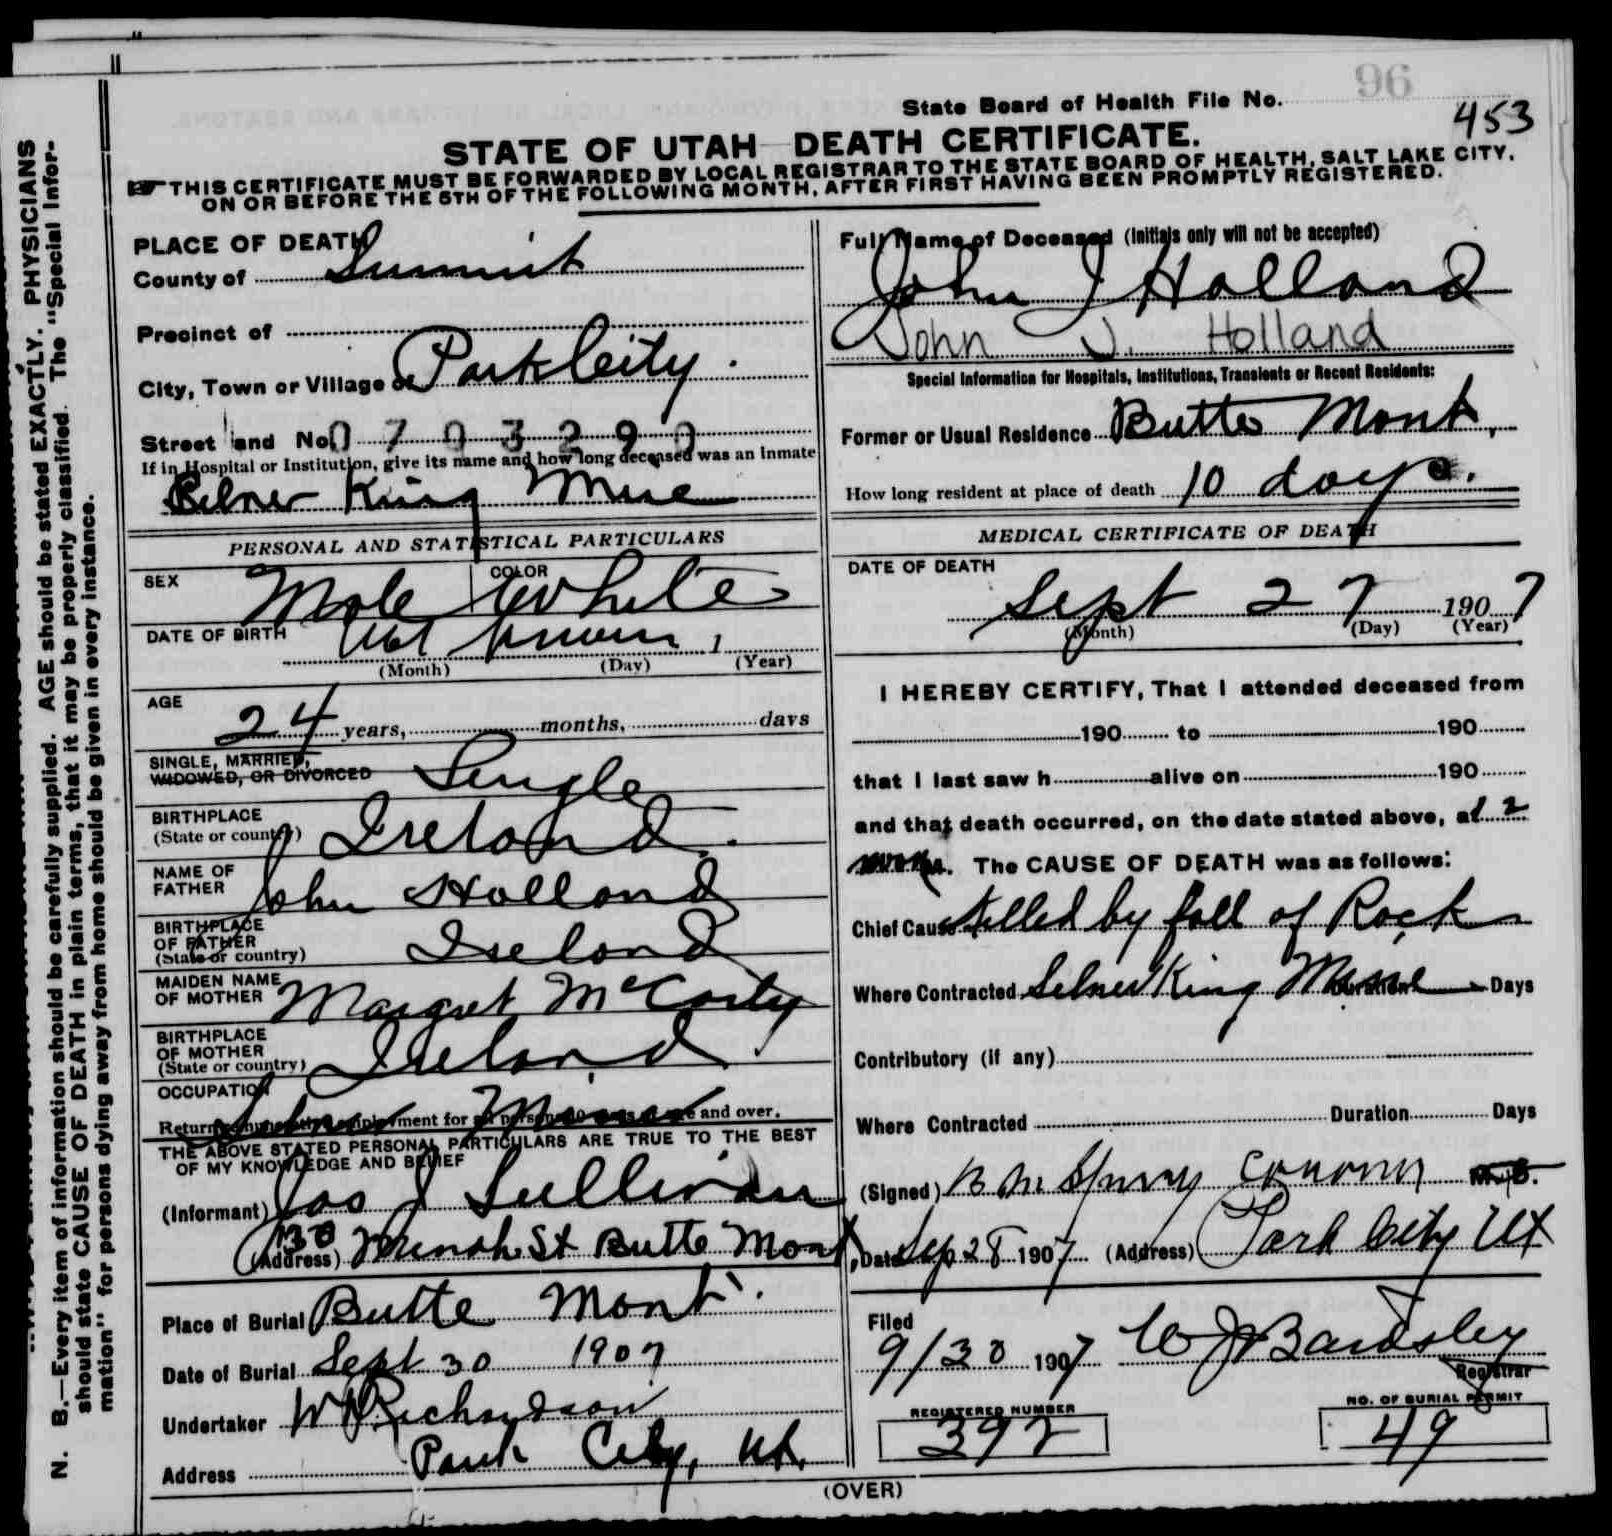 96
State Board of Health File No.
453
STATE OF UTAH—DEATH CERTIFICATE.
THIS CERTIFICATE MUST BE FORWARDED BY LOCAL REGISTRAR TO THE STATE BOARD OF HEALTH, SALT LAKE CITY,
ON OR BEFORE THE 5TH OF THE FOLLOWING MONTH, AFTER FIRST HAVING BEEN PROMPTLY REGISTERED.
N. B.—Every item of information should be carefully supplied. AGE should be stated EXACTLY. PHYSICIANS
should state CAUSE OF DEATH in plain terms, that it may be properly classified. The "Special Infor-
mation" for persons dying away from home should be given in every instance.
PLACE OF DEATH
County of Summit
Precinct of
City, Town or Village of Park City.
Street and No. 0703290
If in Hospital or Institution, give its name and how long deceased was an inmate
King Mine
PERSONAL AND STATISTICAL PARTICULARS
SEX Male COLOR White
DATE OF BIRTH Not known 1
(Month) (Day) (Year)
AGE
24 years, months, days
SINGLE, MARRIED,
WIDOWED, OR DIVORCED Single
BIRTHPLACE
(State or country) Ireland.
NAME OF
FATHER John Holland
BIRTHPLACE
OF FATHER
(State or country) Ireland
MAIDEN NAME
OF MOTHER Margret McCarty
BIRTHPLACE
OF MOTHER
(State or country) Ireland
OCCUPATION
Miner
employment for all persons 10 years and over.
THE ABOVE STATED PERSONAL PARTICULARS ARE TRUE TO THE BEST
OF MY KNOWLEDGE AND BELIEF
(Informant) Jas J Sullivan
(Address) 130 St Butte Mont,
Place of Burial Butte Mont.
Date of Burial Sept 30 1907
Undertaker Richardson
Address Park City, Ut.
Full Name of Deceased (Initials only will not be accepted)
John J Holland
John J. Holland
Special Information for Hospitals, Institutions, Transients or Recent Residents:
Former or Usual Residence Butte Mont,
How long resident at place of death 10 days.
MEDICAL CERTIFICATE OF DEATH
DATE OF DEATH
Sept 27 1907
(Month) (Day) (Year)
I HEREBY CERTIFY, That I attended deceased from
190 to 190
that I last saw h alive on 190
and that death occurred, on the date stated above, at 12
The CAUSE OF DEATH was as follows:
Chief Cause Killed by fall of Rock
Where Contracted Silver King Mine Days
Contributory (if any)
Where Contracted Duration Days
(Signed) Coroner M. D.
Date Sep 28 1907 (Address) Park City Ut
Filed
9/30 1907 W J Bardsley
Registrar
REGISTERED NUMBER
392
NO. OF BURIAL PERMIT
49
(OVER)